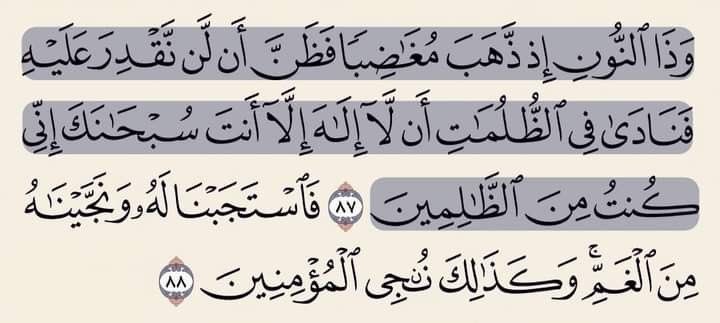 وَذَا ٱلنُّونِ إِذ ذَّهَبَ مُغَٰضِبٗا فَظَنَّ أَن لَّن نَّقۡدِرَ عَلَيۡهِ
فَنَادَىٰ فِي ٱلظُّلُمَٰتِ أَن لَّآ إِلَٰهَ إِلَّآ أَنتَ سُبۡحَٰنَكَ إِنِّي
كُنتُ مِنَ ٱلظَّٰلِمِينَ ٨٧ فَٱسۡتَجَبۡنَا لَهُۥ وَنَجَّيۡنَٰهُ
مِنَ ٱلۡغَمِّۚ وَكَذَٰلِكَ نُـۨجِي ٱلۡمُؤۡمِنِينَ ٨٨